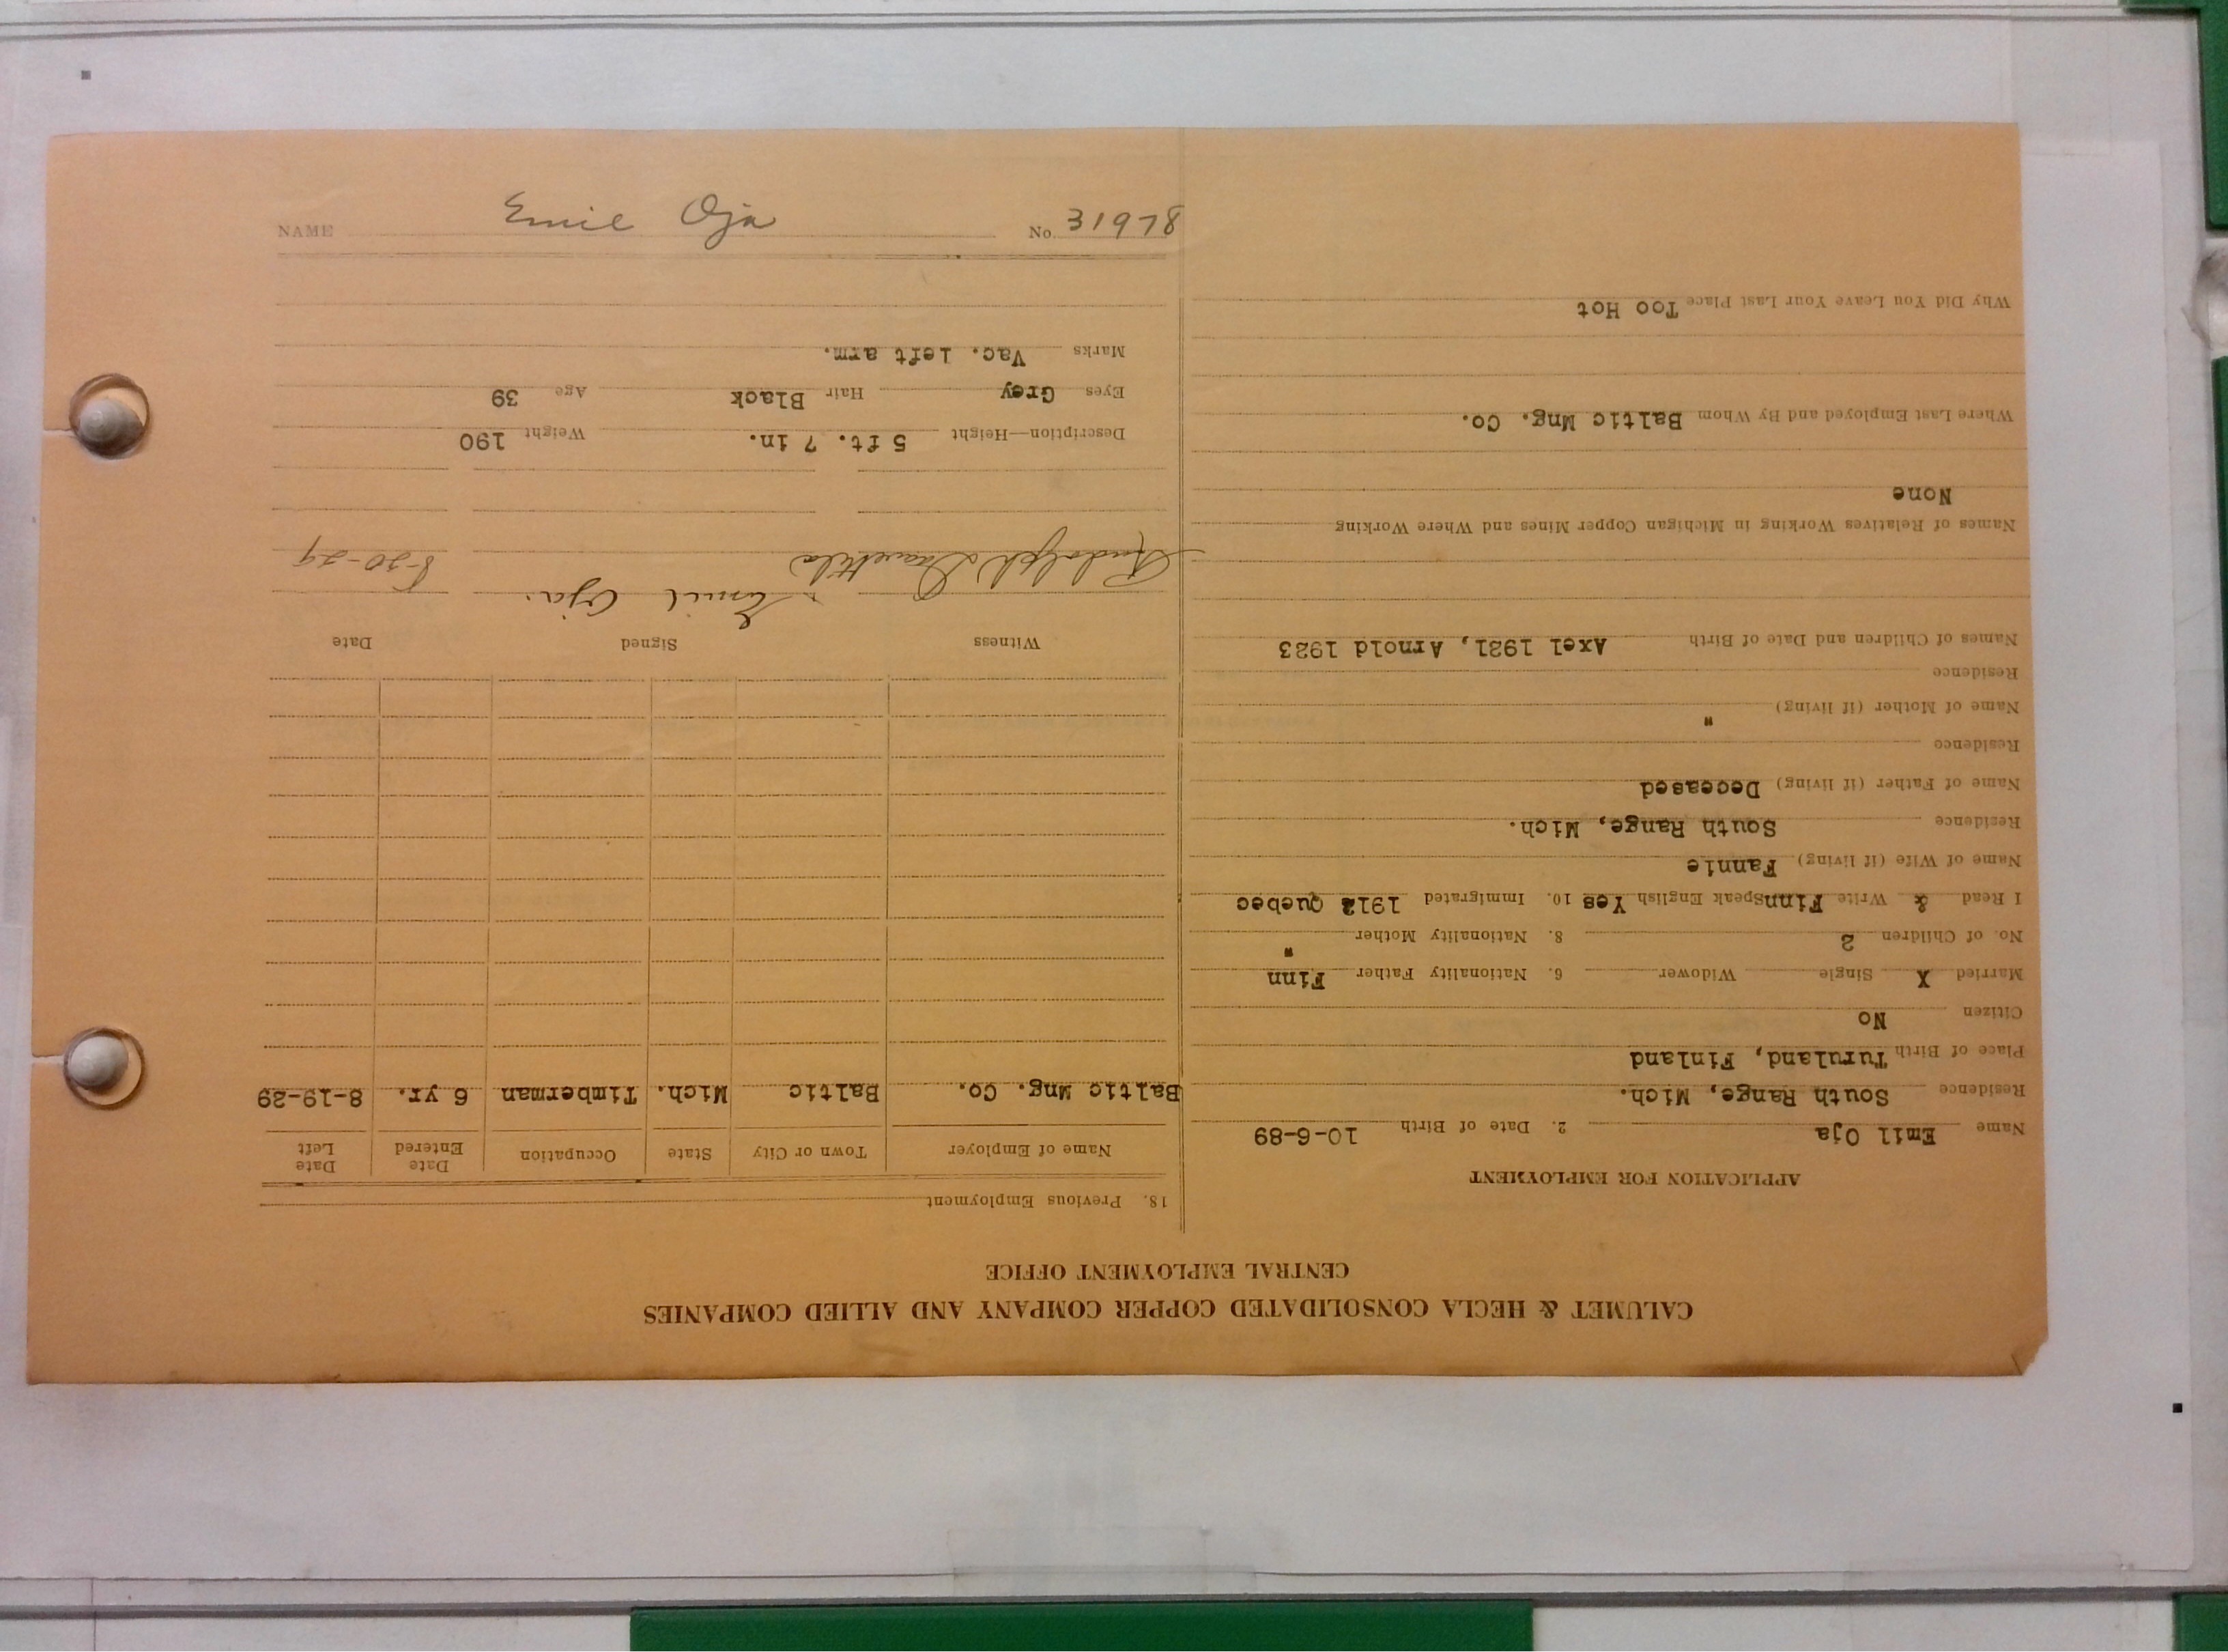 NAME Emil Oja No. 31978
CALUMET & HECLA CONSOLIDATED COPPER COMPANY AND ALLIED COMPANIES
CENTRAL EMPLOYMENT OFFICE
APPLICATION FOR EMPLOYMENT
Name Emil Oja 2. Date of Birth 10-6-89
Residence South Range, Mich.
Place of Birth Turuland, Finland
Citizen No
Married X Single Widower 6. Nationality Father Finn
No. of Children 2 8. Nationality Mother "
I Read & Write Finn Speak English Yes 10. Immigrated 1912 Quebec
Name of Wife (if living) Fannie
Residence South Range, Mich.
Name of Father (if living) Deceased
Residence
Name of Mother (if living) "
Residence
Names of Children and Date of Birth Axel 1921, Arnold 1923
Names of Relatives Working in Michigan Copper Mines and Where Working
None
Where Last Employed and By Whom Baltic Mng. Co.
Why Did You Leave Your Last Place Too Hot
18. Previous Employment
Name of Employer Town or City State Occupation Date Entered Date Left
Baltic Mng. Co. Baltic Mich. Timberman 6 yr. 8-19-29
Witness Signed Date
Emil Oja.
Rudolph 8-20-29
Description—Height 5 ft. 7 in. Weight 190
Eyes Grey Hair Black Age 39
Marks Vac. left arm.